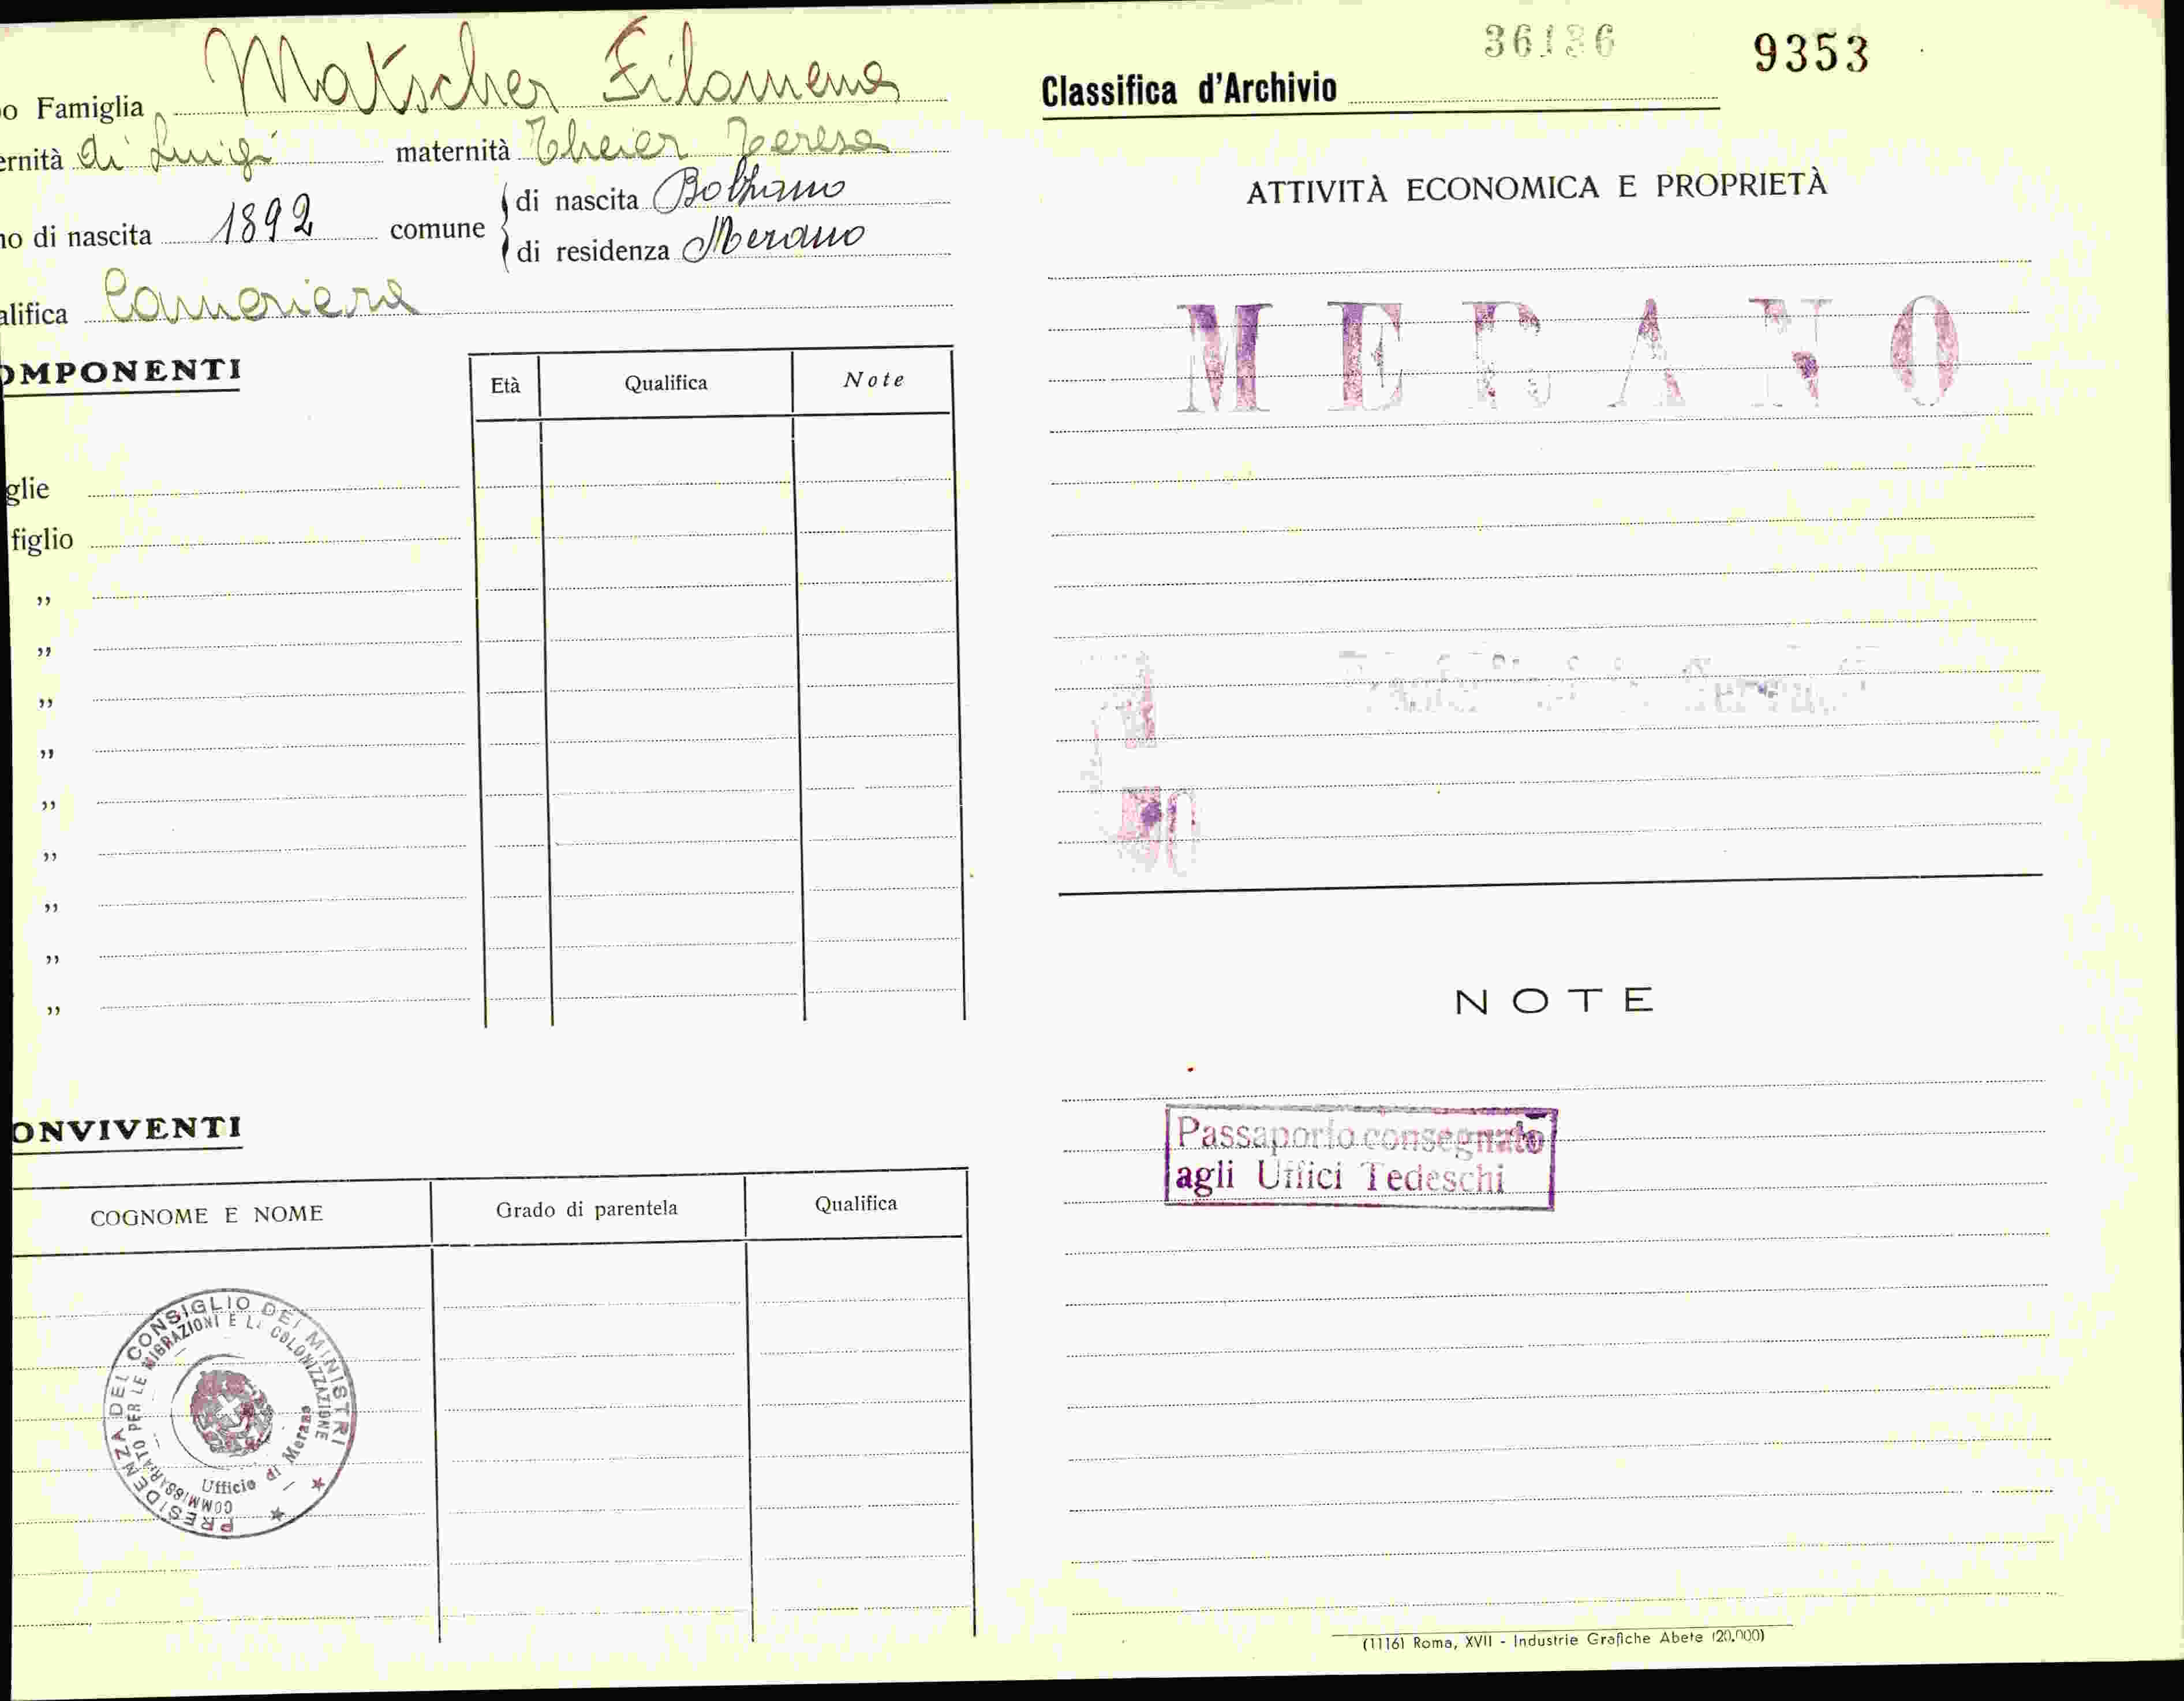 o Famiglia Matscher Filomena
ernità di Luigi maternità Theier Teresa
no di nascita 1892 comune di nascita Bolzano
di residenza Merano
alifica Cameriera
OMPONENTI
Età Qualifica Note
glie
figlio
„
„
„
„
„
„
„
„
„
ONVIVENTI
COGNOME E NOME Grado di parentela Qualifica
PRESIDENZA DEL CONSIGLIO DEI MINISTRI
COMMISSARIATO PER LE MIGRAZIONI E LA COLONIZZAZIONE
Ufficio di Merano
36136 9353
Classifica d'Archivio
ATTIVITÀ ECONOMICA E PROPRIETÀ
MERANO
NOTE
Passaporto consegnato
agli Uffici Tedeschi
(1116) Roma, XVII - Industrie Grafiche Abete (20.000)